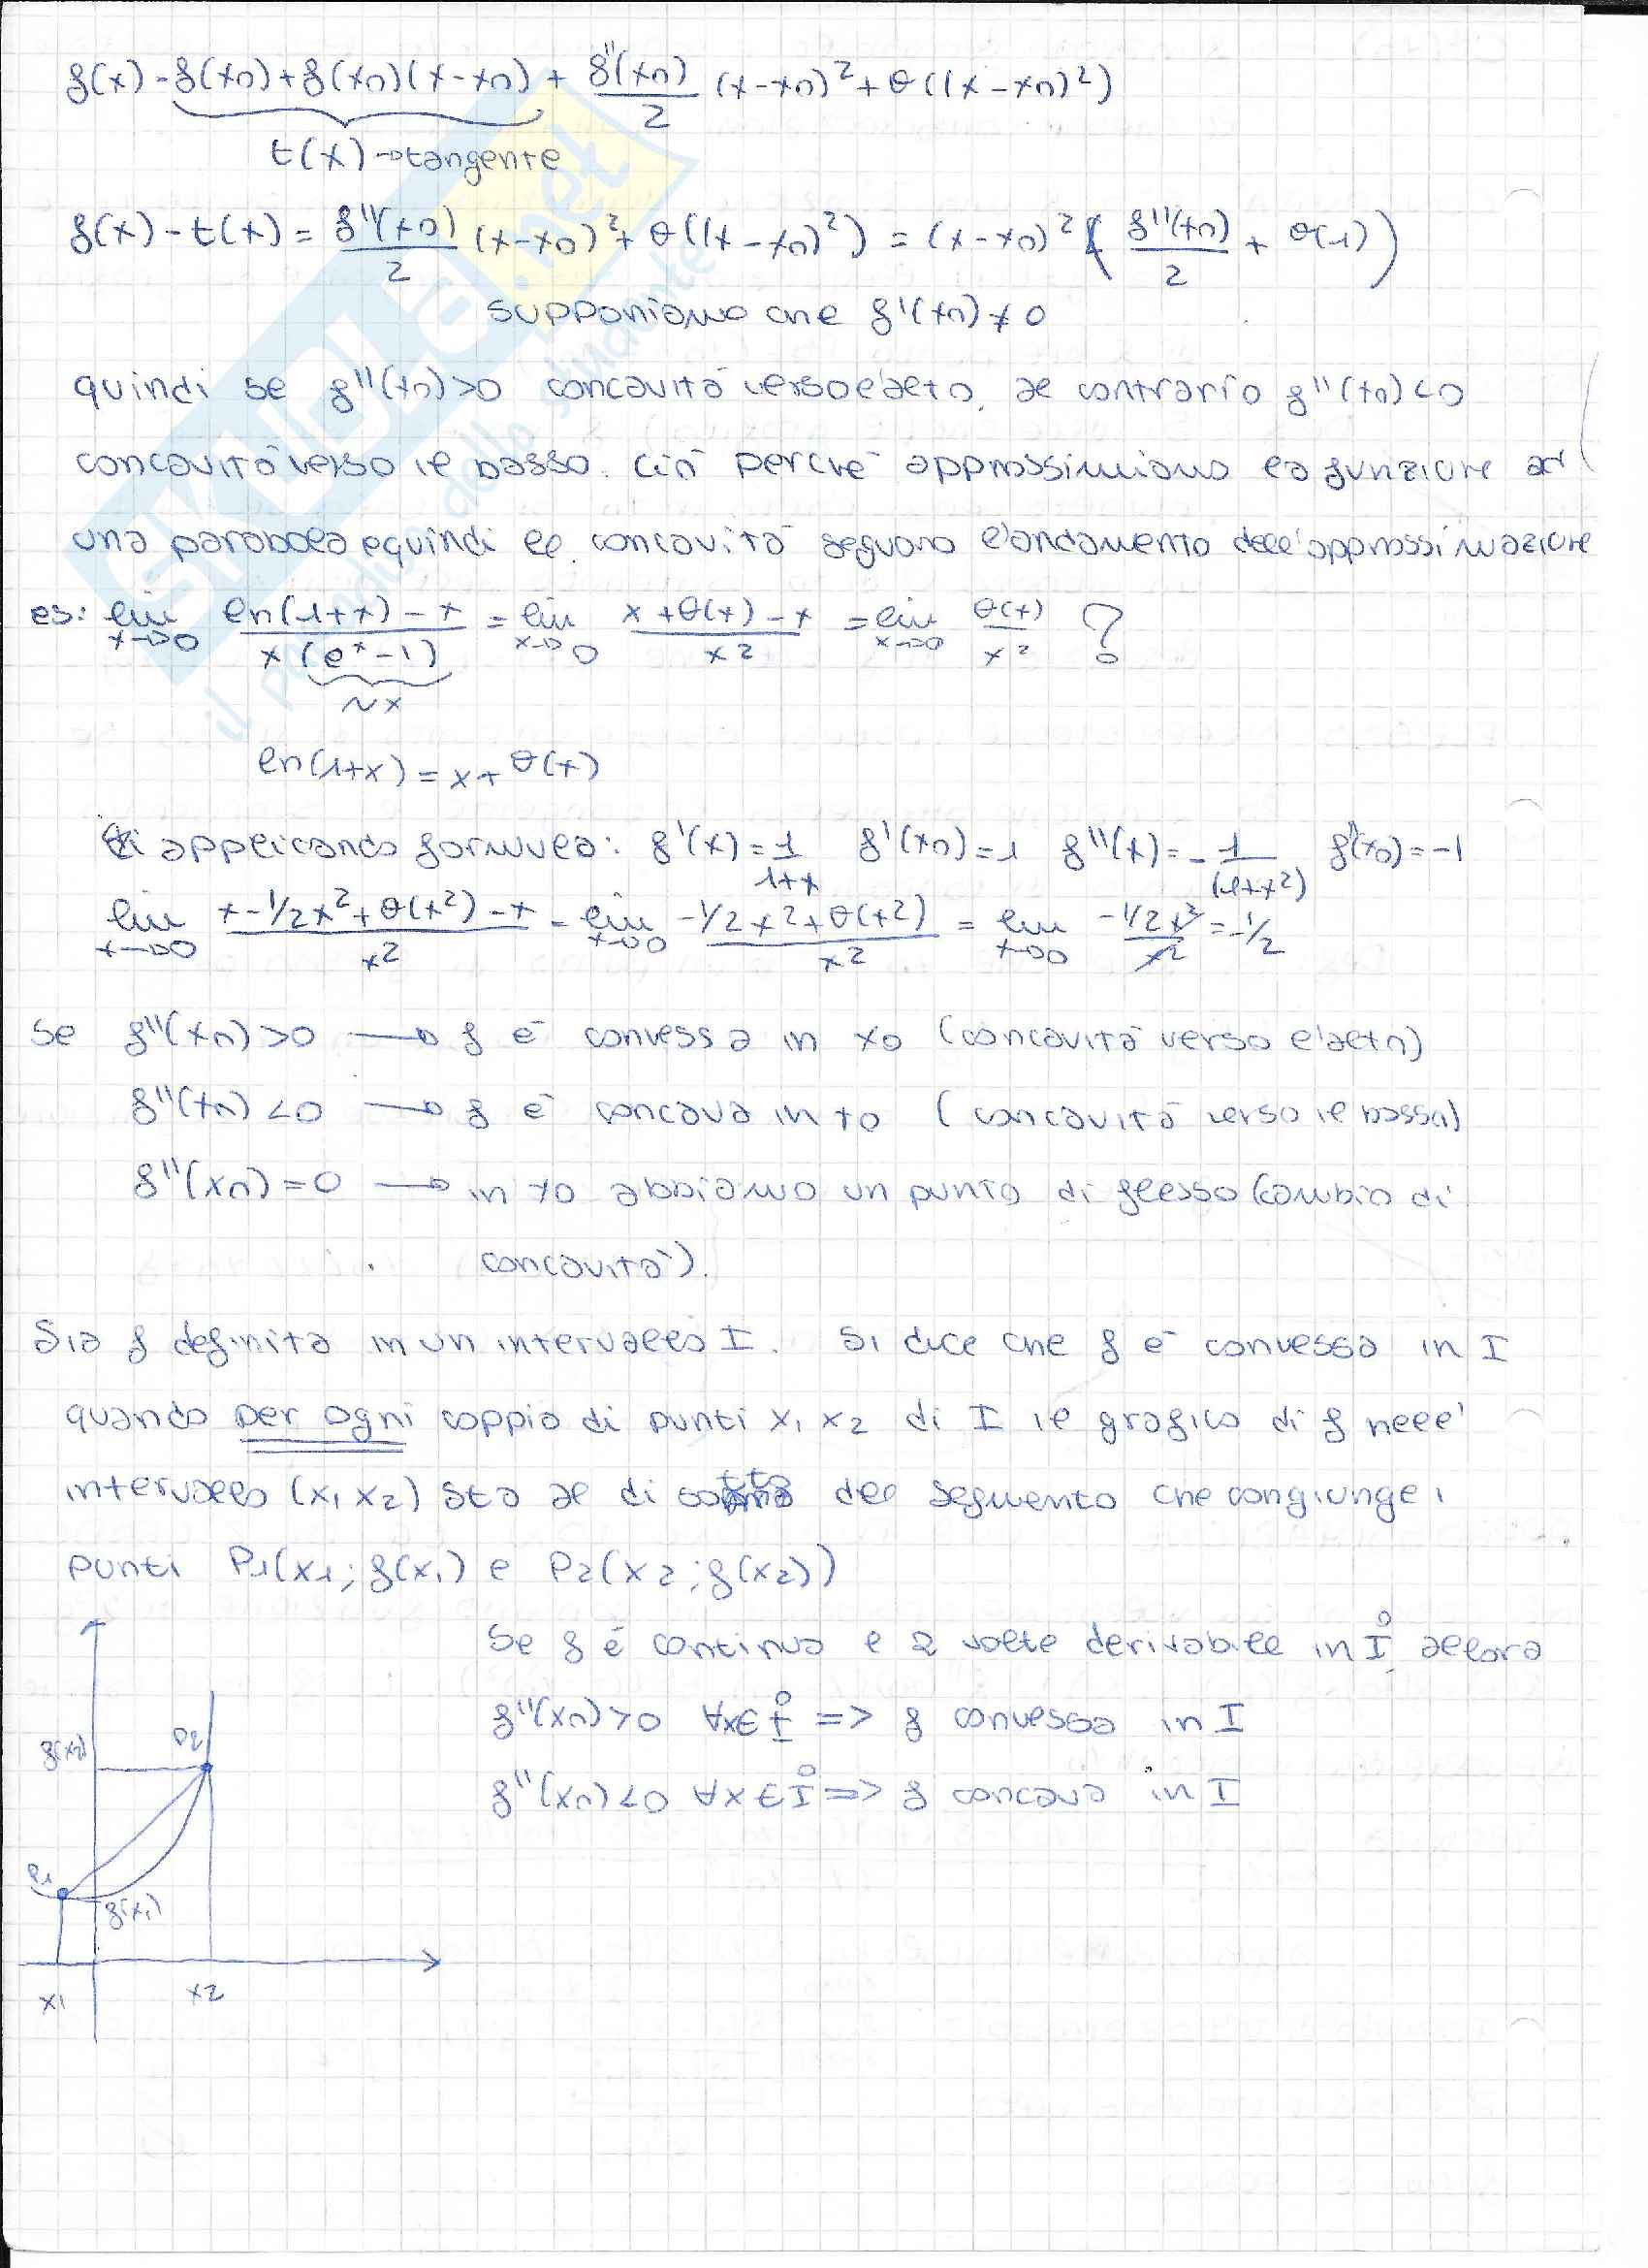 f(x) - f(x0) + f(x0)(x-x0) + f''(x0)/2 (x-x0)² + o((x-x0)²)
t(x) → tangente
f(x) - t(x) = f''(x0)/2 (x-x0)² + o((x-x0)²) = (x-x0)² (f''(x0)/2 + o(1))
supponiamo che f''(x0) ≠ 0
quindi se f''(x0)>0 concavità verso l'alto, al contrario f''(x0)<0
concavità verso il basso. Ciò perchè approssimiamo la funzione ad
una parabola e quindi le concavità seguono l'andamento dell'approssimazione
es: lim x→0 ln(1+x)-x / x(e^x-1) = lim x→0 x+o(x)-x / x² = lim x→0 o(x)/x² ?
~x
ln(1+x) = x + o(x)
applicando formula: f'(x) = 1/1+x f'(x0)=1 f''(x) = -1/(1+x²) f''(x0)=-1
lim x→0 x-1/2x²+o(x²)-x / x² = lim x→0 -1/2x²+o(x²) / x² = lim x→0 -1/2x²/x² = -1/2
Se f''(x0)>0 → f è convessa in x0 (concavità verso l'alto)
f''(x0)<0 → f è concava in x0 (concavità verso il basso)
f''(x0)=0 → in x0 abbiamo un punto di flesso (cambio di
concavità).
Sia f definita in un intervallo I. Si dice che f è convessa in I
quando per ogni coppia di punti x1 x2 di I il grafico di f nell'
intervallo (x1 x2) sta al di sotto del segmento che congiunge i
punti P1(x1;f(x1) e P2(x2;f(x2))
Se f è continua e 2 volte derivabile in I̊ allora
f''(x0)>0 ∀x∈I̊ => f convessa in I
f''(x0)<0 ∀x∈I̊ => f concava in I
f(x2) P2
P1 f(x1)
x1 x2
SKUOLA.net
il paradiso dello studente